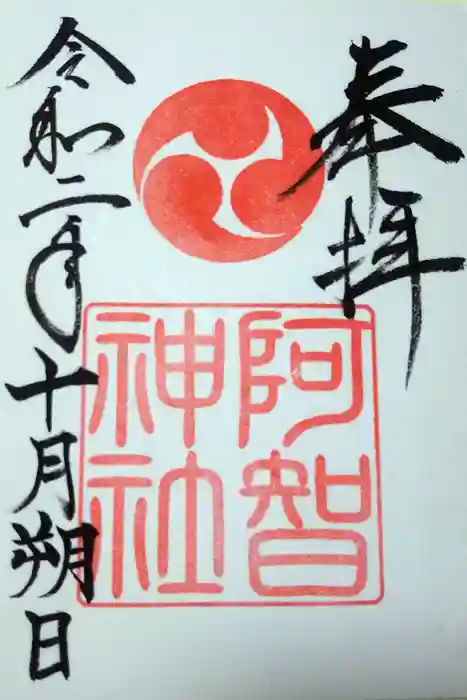 奉拝
阿智
神社
令和二年十月朔日